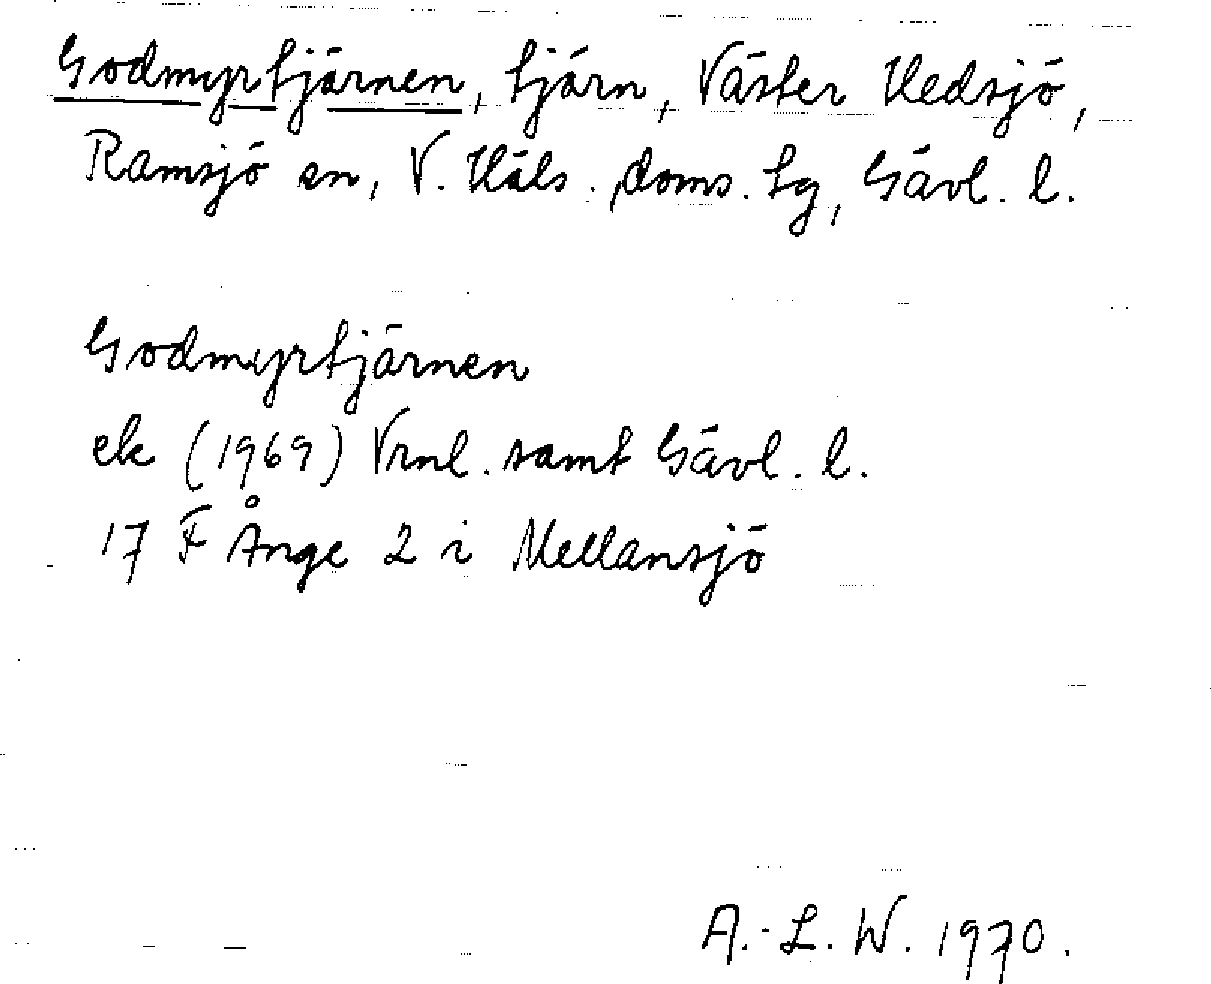 Godmyrtjärnen, tjärn, Väster Hedsjö,
Ramsjö sn, V. Häls. doms. tg, Gävl. l.
Godmyrtjärnen
ek (1969) Vrml. samt Gävl. l.
17 F Ånge 2 i Mellansjö
A.-L. W. 1970.